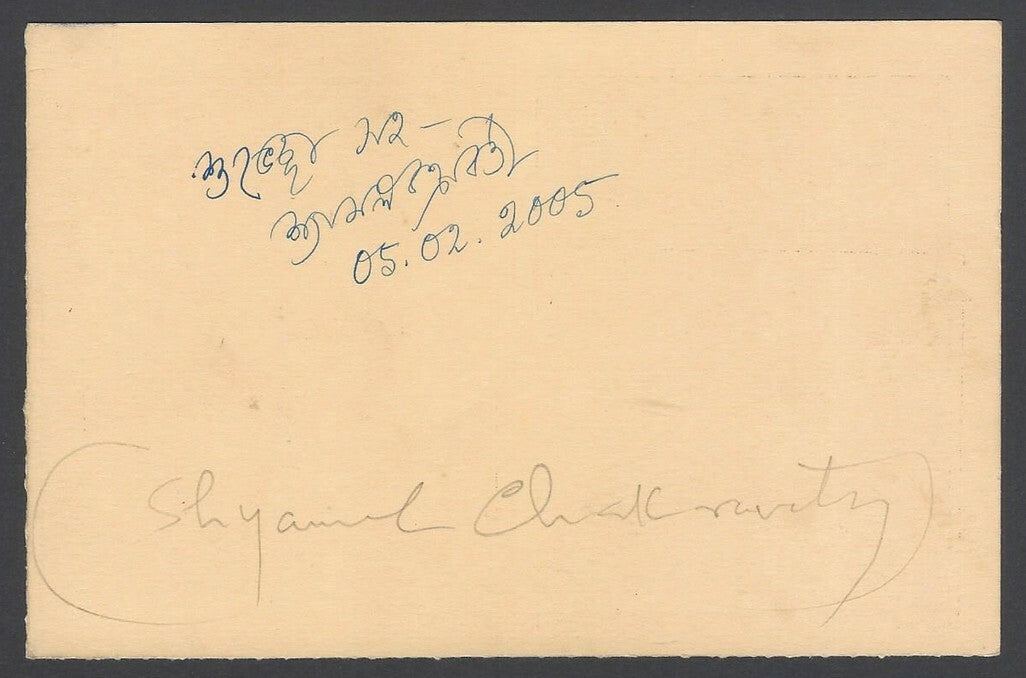 শুভেচ্ছা সহ —
শ্যামল চক্রবর্তী
05.02.2005
(Shyamal Chakravorty)